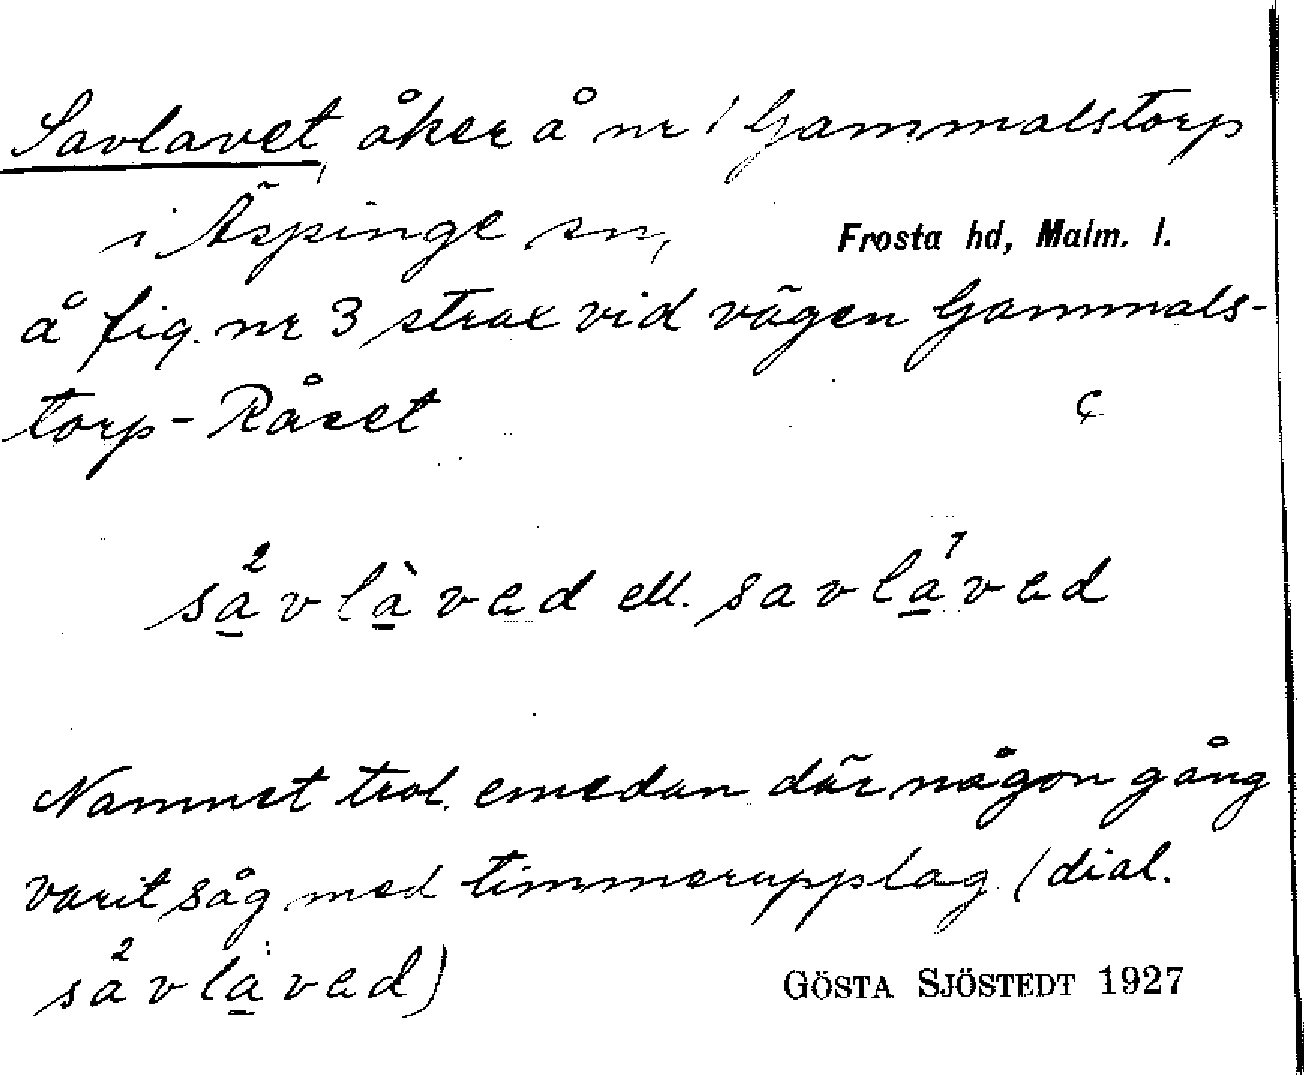 Savlavet, åker å nr 1 Gammalstorp
i Äspinge sn, Frosta hd, Malm. l.
å fig. nr 3 strax vid vägen Gammals-
torp - Råset
ç
sa²vlàvad ell. savla¹vad
Namnet trol. emedan där någon gång
varit såg med timmerupplag (dial.
sa²vlàvad)
GÖSTA SJÖSTEDT 1927